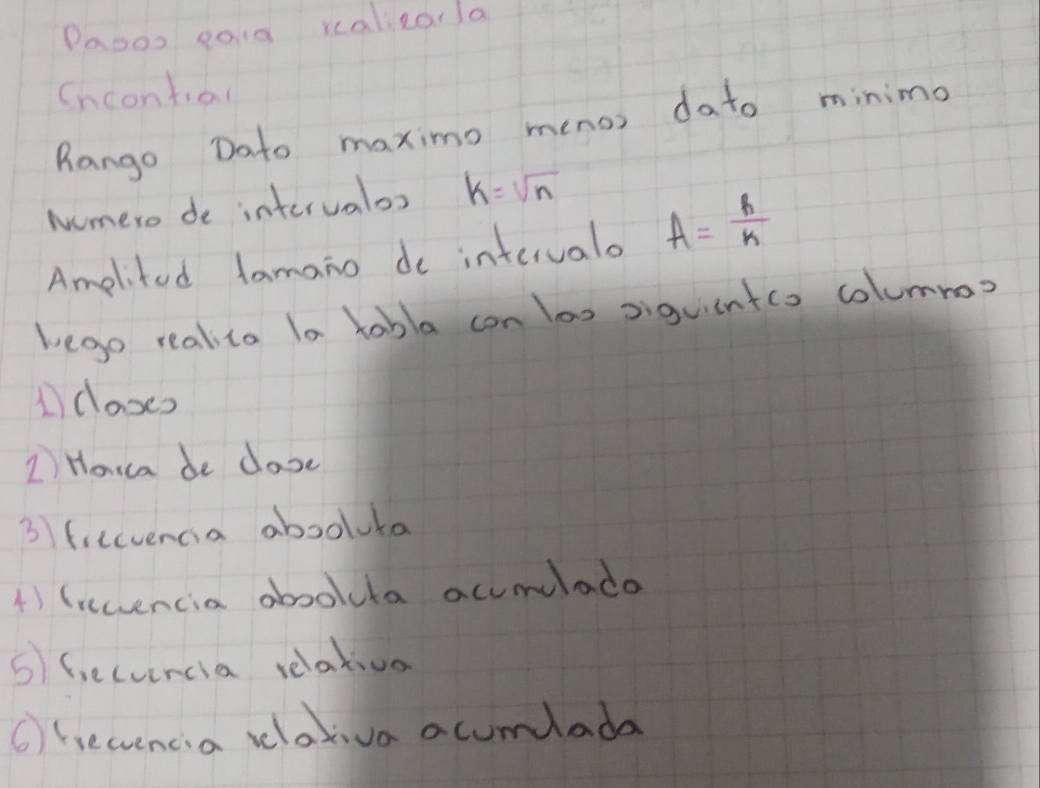 Pasos para realizarla
Encontrar
Rango Dato maximo menos dato minimo
Numero de intervalos K = √n
Amplitud tamaño de intervalo A = R/K
luego realizo la tabla con las siguientes columnas
1) Clases
2) Marca de clase
3) frecuencia absoluta
4) frecuencia absoluta acumulada
5) frecuencia relativa
6) frecuencia relativa acumulada